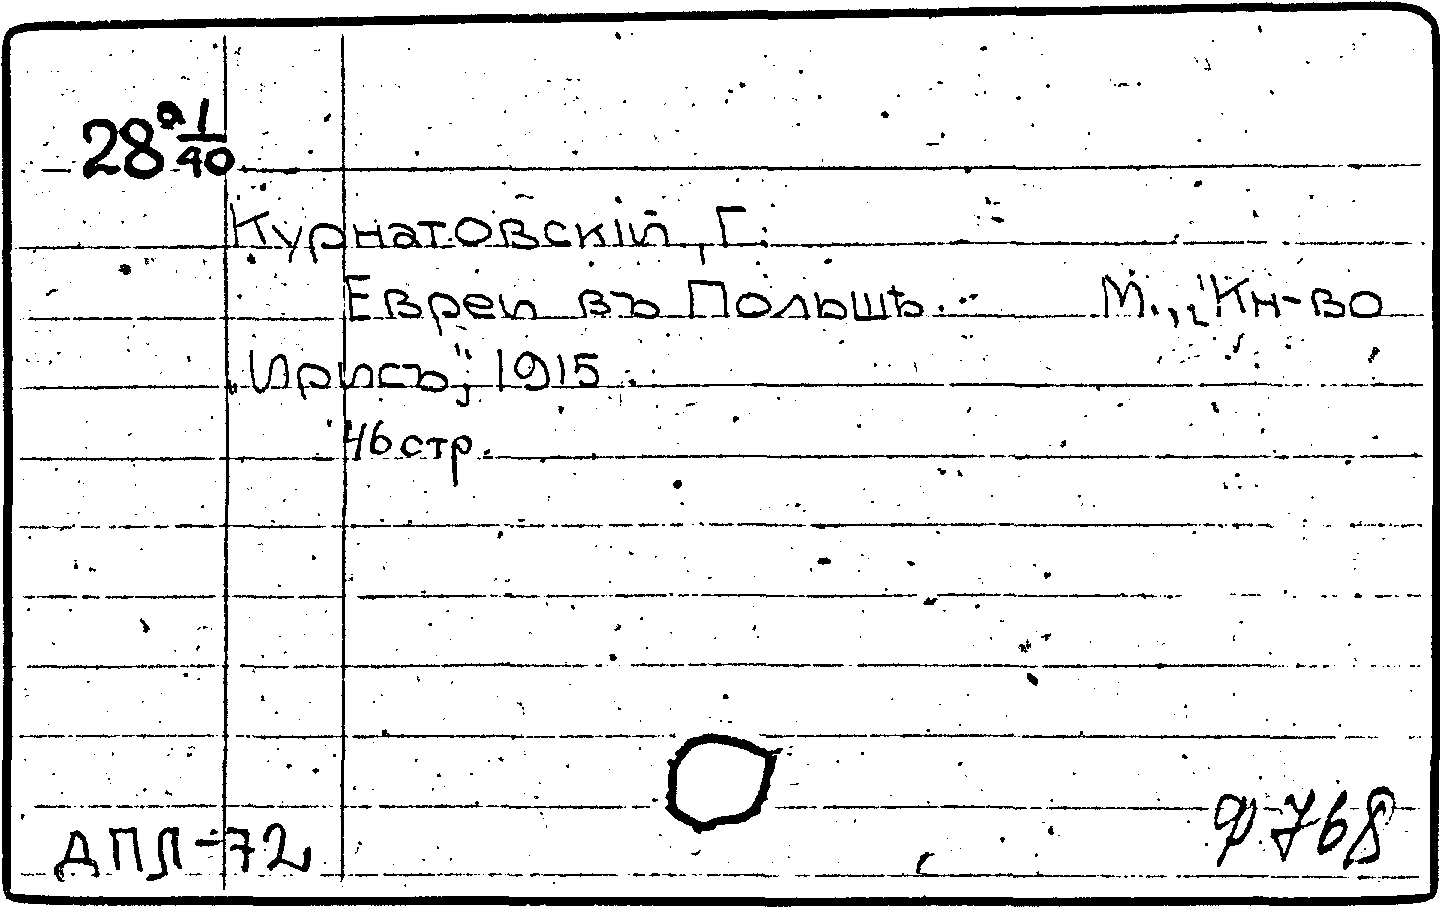 28ᵃ 1/40
Курнатовскій, Г.
Евреи въ Польшѣ. - М., „Кн-во
„Ирисъ", 1915.
46 стр.
ДПЛ-72
Ф 768